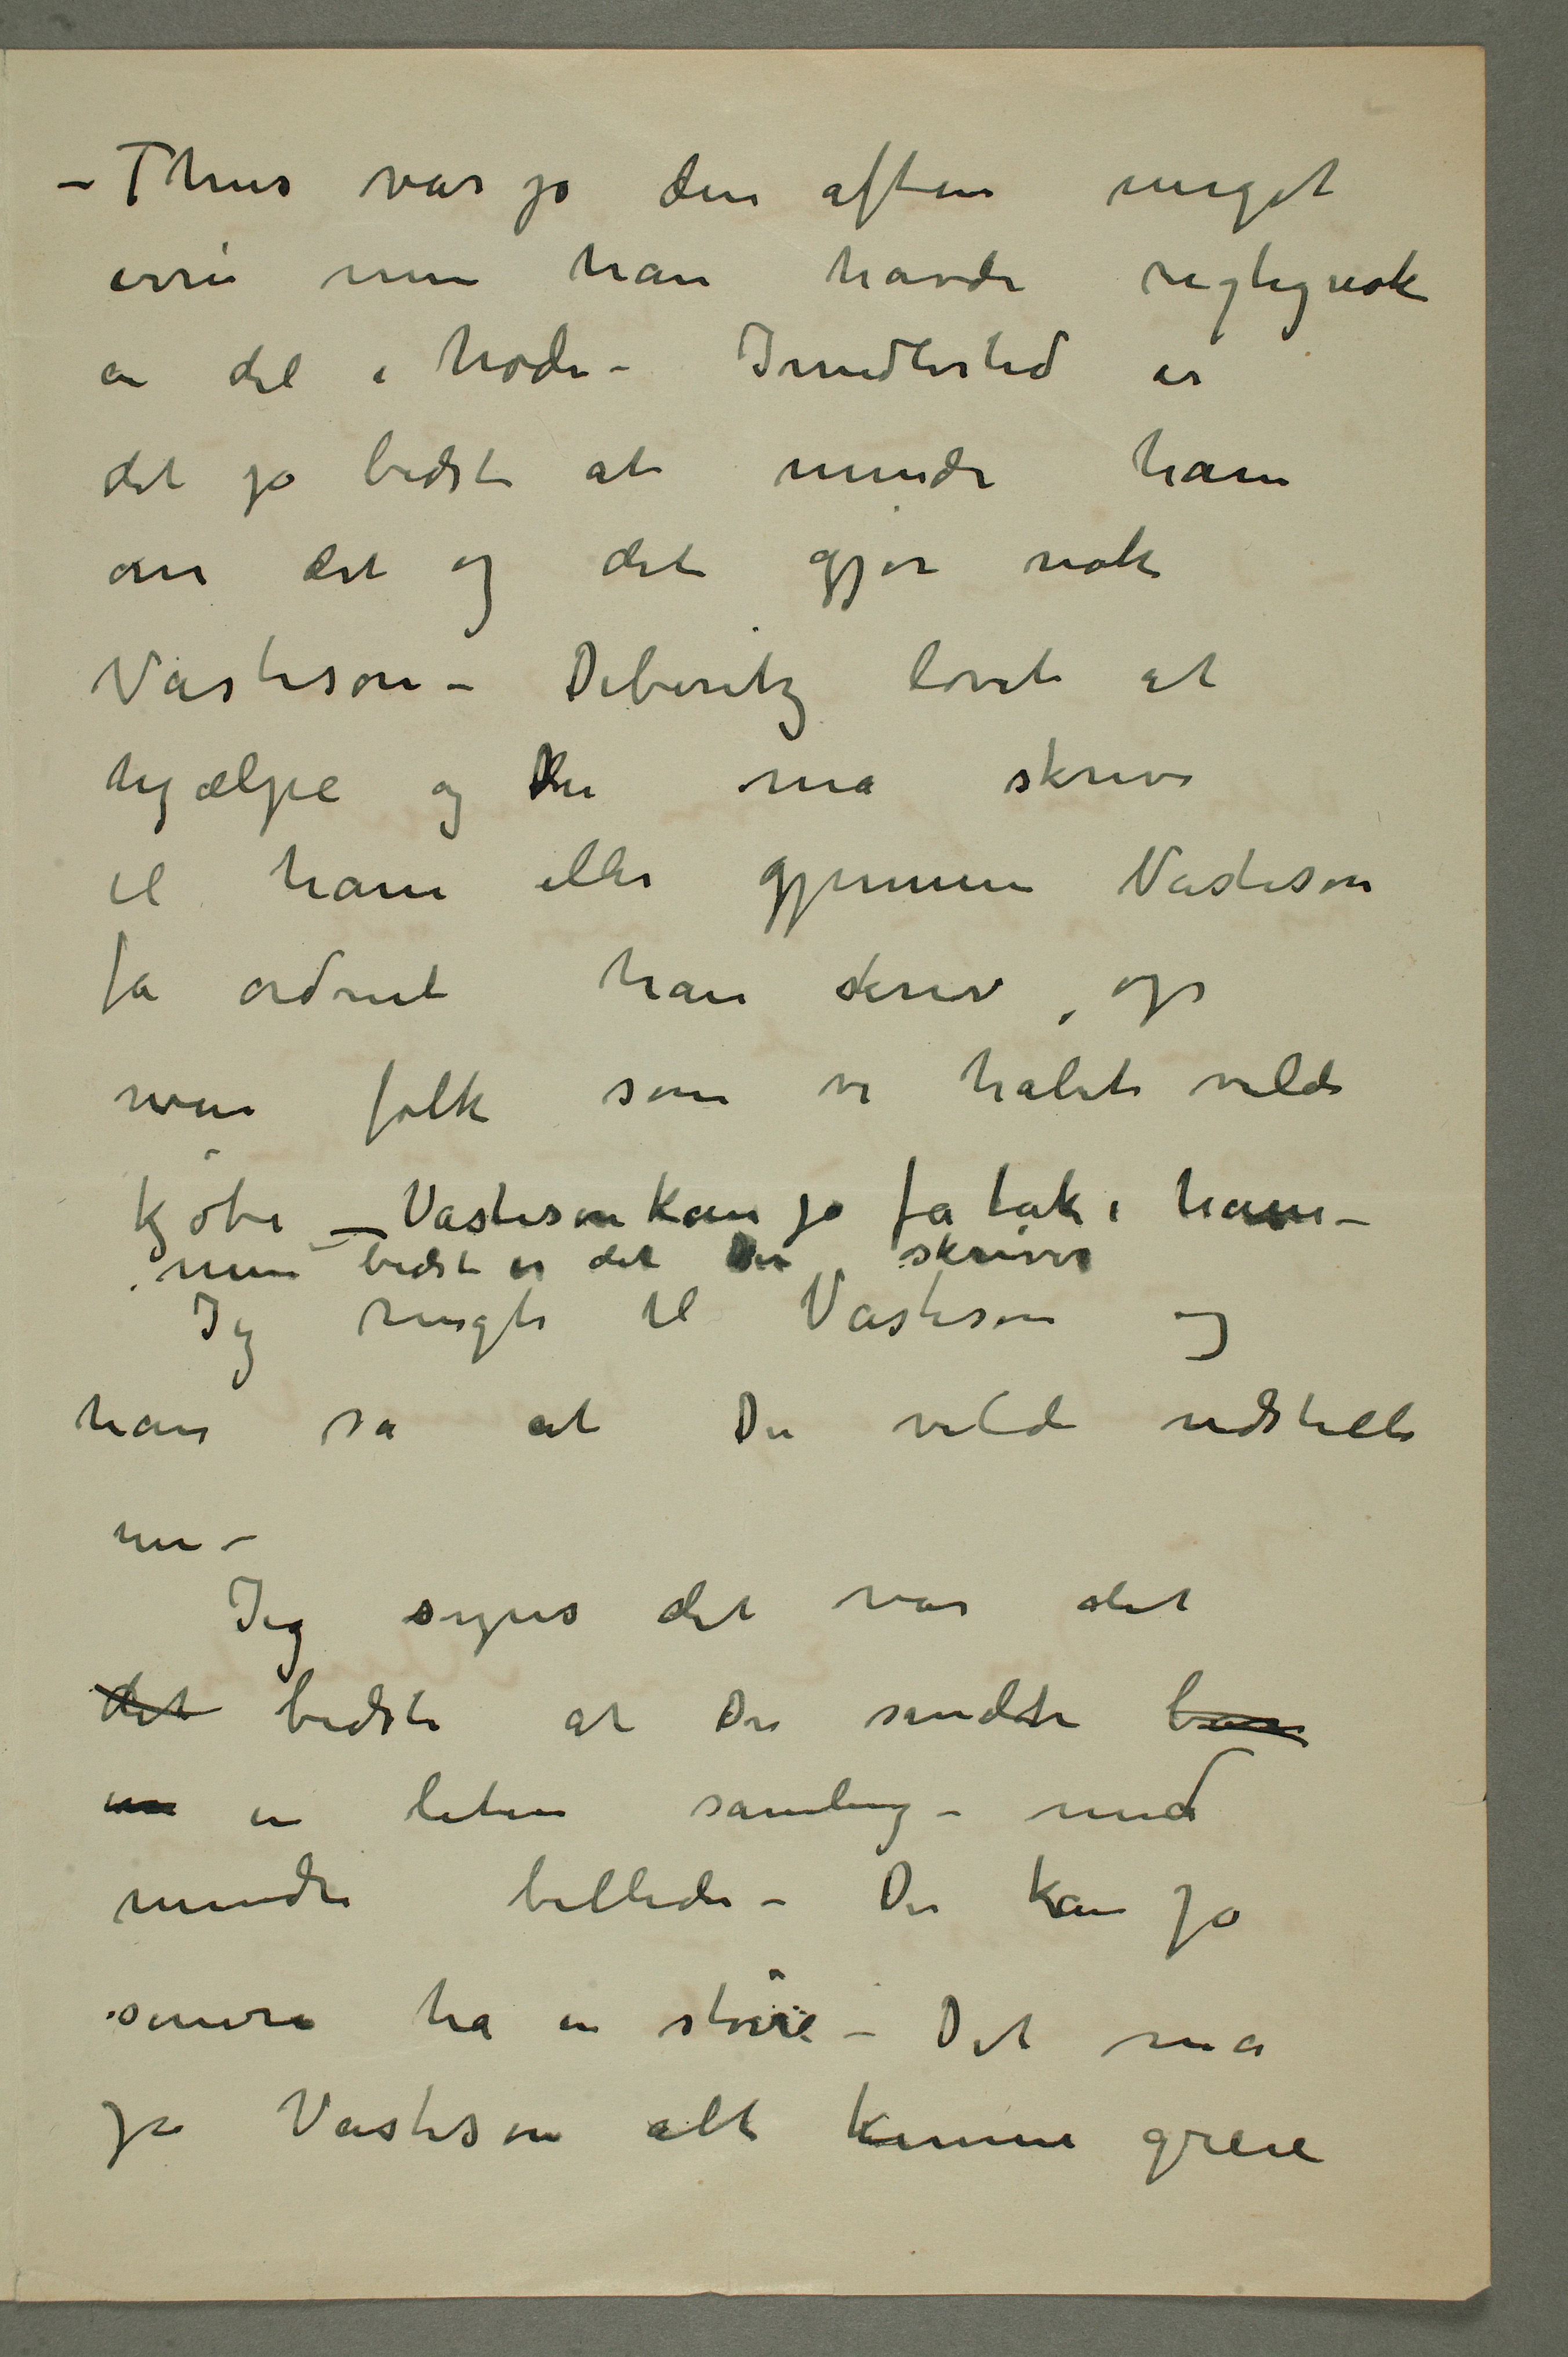 – Thiis var jo den aften meget
ivrig men han havde rigtignok
en del i hodet – Imidlertid er
det jo bedst at minde ham
om det og det gjør nok
Vasteson – Deberitz lovet at
hjælpe og Du må skrive
til ham eller gjennem Vasteson
få ordnet han skrev op
navn folk som vi håbet vilde
kjøbe – Vasteson kan jo få tak i ham –
men bedst er det Du skriver
Jeg ringte til Vasteson og
han sa at Du vilde udstille
nu –
Jeg synes det var det
det bedste at Du sendte bare
en en liten samling – med
mindre billeder – Du kan jo
senere ha en større – Det må
jo Vasteson alt kunne greie